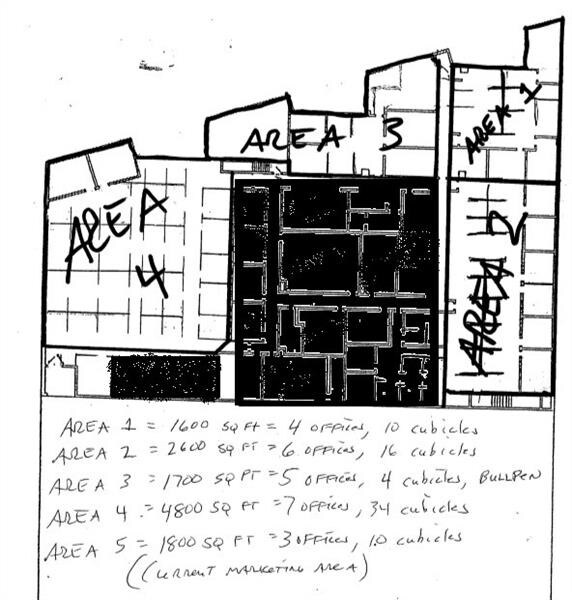 AREA 1
AREA 3
AREA 2
AREA 4
AREA 1 = 1600 SQ FT = 4 OFFICES, 10 cubicles
AREA 2 = 2600 SQ FT = 6 OFFICES, 16 cubicles
AREA 3 = 1700 SQ FT = 5 OFFICES, 4 cubicles, BULLPEN
AREA 4 = 4800 SQ FT = 7 OFFICES, 34 cubicles
AREA 5 = 1800 SQ FT = 3 OFFICES, 10 cubicles
((CURRENT MARKETING AREA)